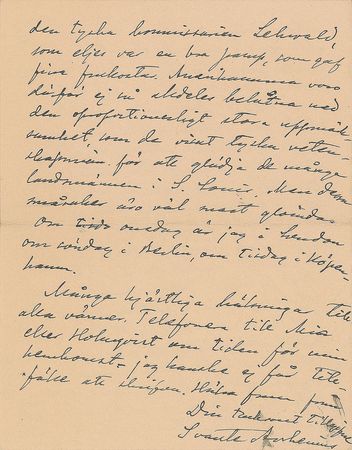 den tyska kommissarien Lehwald,
som eljes var en bra karl, som gaf
fina frukostar. Amerikanarna voro
därför ej så alldeles belåtna med
den oproportionerligt stora uppmärk-
samhet som de visat tyska veten-
skapsmän för att glädja de många
landsmännen i S. Louis. Men dessa
äro väl mest glada.
Om onsdag är jag i London
om söndag i Berlin, om tisdag i Köpen-
hamn.
Många hjärtliga hälsningar till
alla vänner. Telefonera till Mia
eller Holmqvist om tiden för min
hemkomst - jag kanske ej får till-
fälle att skrifva. Hälsa
Din tillgifne
Svante Arrhenius